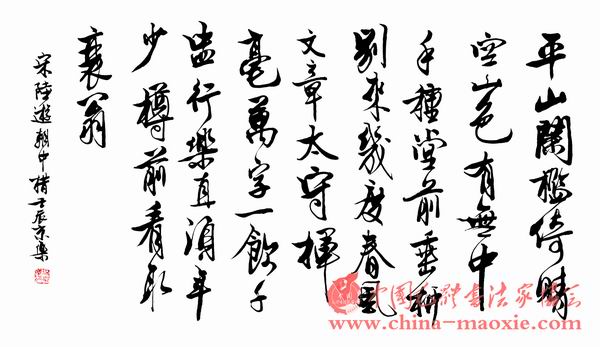 平山闌檻倚晴
空山色有無中
手種堂前垂柳
別來幾度春風
文章太守揮
毫萬字一飲千
盅行樂直須年
少樽前看取
衰翁
宋陸遊朝中措壬辰京樂
中国毛體書法家協会
www.china-maoxie.com